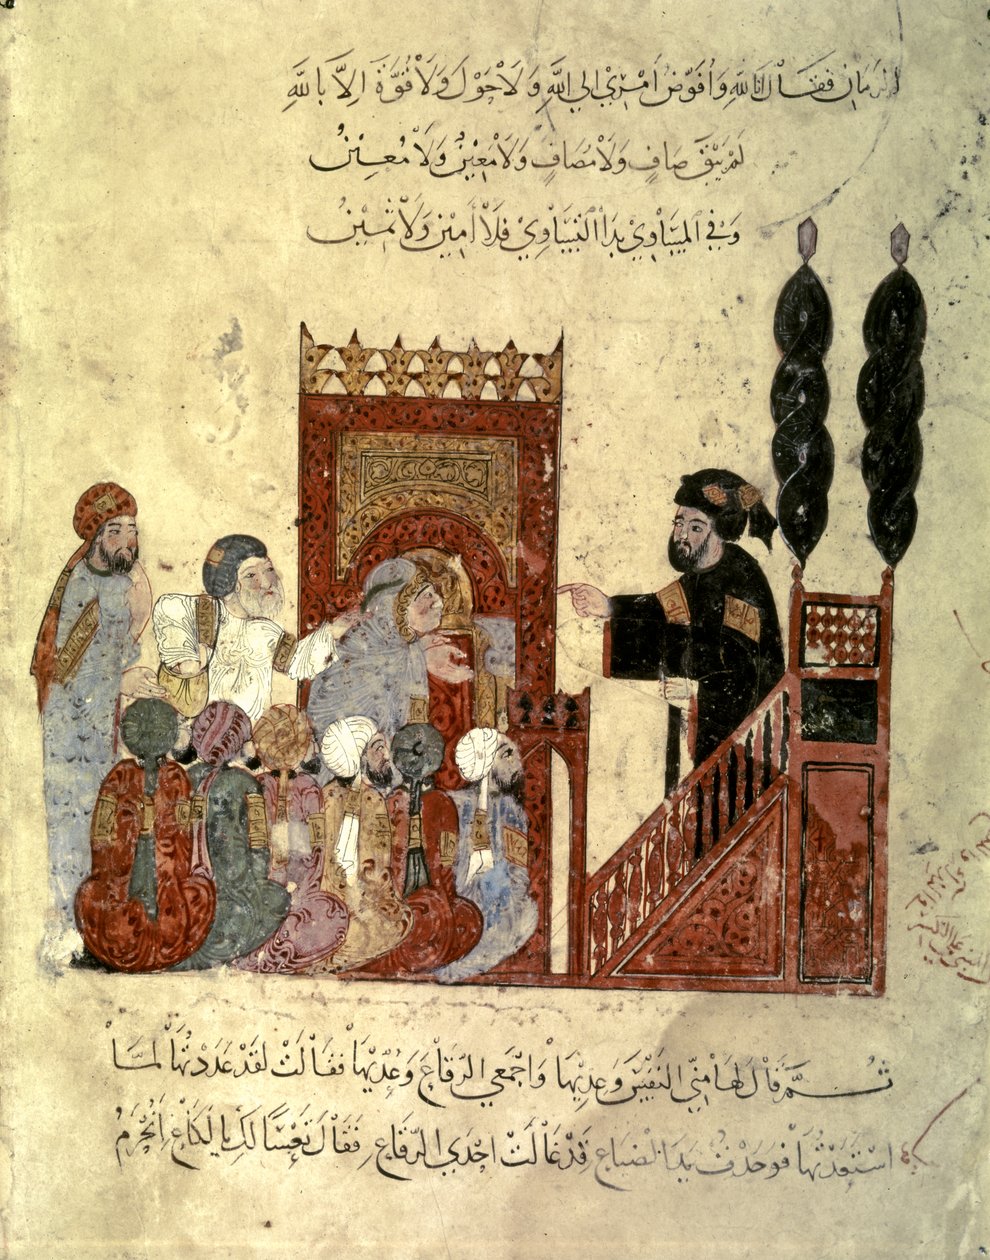 الزمان فَقَالَ اِنَّا لِلّٰهِ وَاُفَوِّضُ اَمْرِيْ اِلى اللهِ وَلَا حَوْلَ وَلَا قُوَّةَ اِلَّا بِاللهِ
لَمْ يَبْقَ صَافٍ وَلَا مُصَافٍ وَلَا مَعِيْنٌ وَلَا مُعِيْنُ
وَفِي المَسَاوِيْ بَدَا التَّسَاوِيْ فَلَا اَمِيْنَ وَلَا ثَمِيْنُ
ثُمَّ قَالَ لَهَا مَنِّي النَّفْسَ وَعِدِيْهَا وَاجْمَعِي الرِّقَاعَ وَعُدِّيْهَا فَقَالَتْ لَقَدْ عَدَدْتُهَا لَمَّا
اسْتَعَدْتُهَا فَوَجَدْتُ يَدَ الضَّيَاعِ قَدْ غَالَتْ اِحْدَى الرِّقَاعِ فَقَالَ تَعْسًا لَكِ يَا لَكَاعِ اَنُحْرَمُ